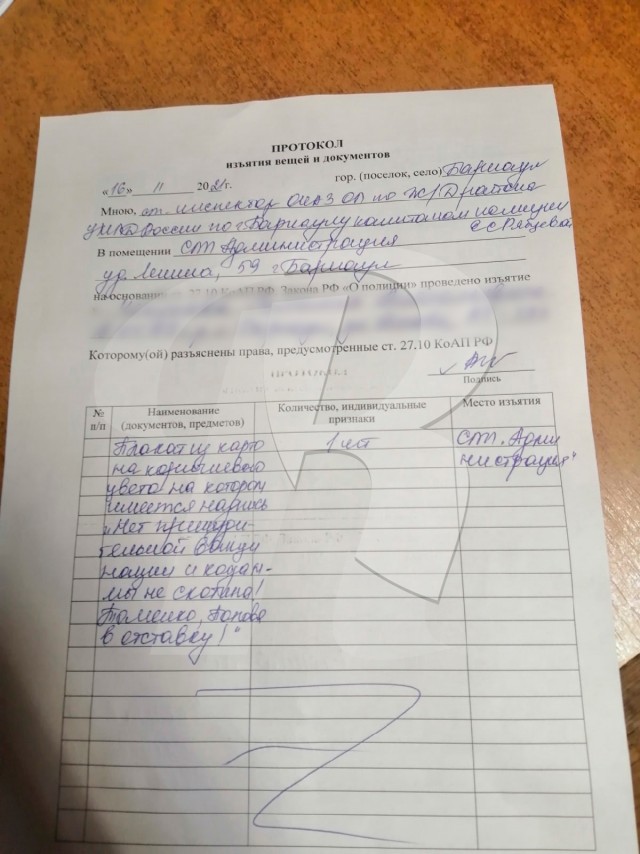 ПРОТОКОЛ
изъятия вещей и документов
«16» 11 2021г. гор. (поселок, село) Барнаул
Мною, ст. инспектор ОИАЗ ОП по Ж/Д району
УМВД России по г Барнаулу капитаном полиции
В помещении СТ Администрация Е С Рябцева
ул Ленина, 59 г Барнаул
на основании 27.10 КоАП РФ, Закона РФ «О полиции» проведено изъятие
Которому(ой) разъяснены права, предусмотренные ст. 27.10 КоАП РФ
Подпись
№ п/п Наименование (документов, предметов) Количество, индивидуальные признаки Место изъятия
Плакат из карто 1 шт СТ. Адми
на коричневого нистрация"
цвета на котором
имеется надпись
„Нет принуди
тельной вакци
нации и кодам-
мы не скотина!
Томенко, Попова
в отставку!"